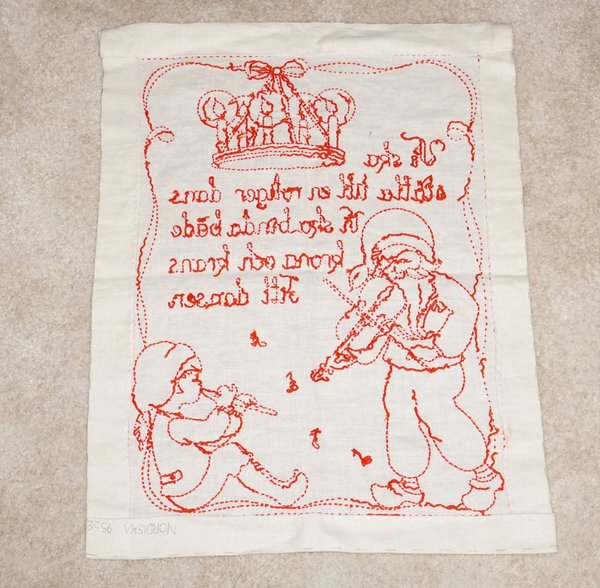 Vi ska
ställa till en roliger dans
Vi ska binda både
krona och krans
Till dansen
NORDISKA